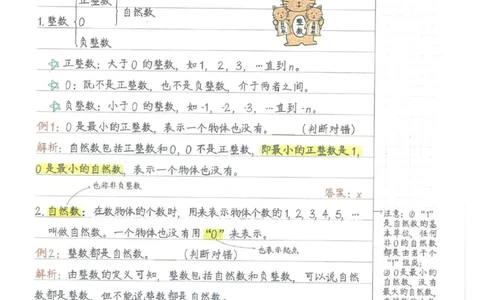 正整数
自然数
1.整数
0
负整数
整数
☆ 正整数：大于0的整数，如1，2，3，…直到n。
☆ 0：既不是正整数，也不是负整数，介于两者之间。
☆ 负整数：小于0的整数，如-1，-2，-3，…直到-n。
例1：0是最小的正整数，表示一个物体也没有。____（判断对错）
解析：自然数包括正整数和0，0不是正整数，即最小的正整数是1，
0是最小的自然数，表示一个物体也没有。
也称非负整数
答案：×
2.自然数：在数物体的个数时，用来表示物体个数的1，2，3，4，5，…
叫做自然数。一个物体也没有用“0”来表示。
也表示起点
例2：整数都是自然数。____（判断对错）
解析：由整数的定义可知，整数包括自然数和负整数，可以说自然
数都是整数，但不能说整数都是自然数。
注意：①“1”
是自然数的基
本单位，任何
非0的自然数
都是由若干个
“1”组成；
②0是最小的
自然数，没有
最大的自然数，